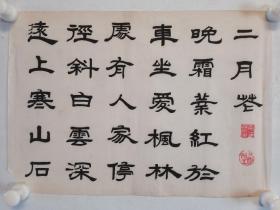 遠上寒山石
徑斜白雲深
處有人家停
車坐愛楓林
晚霜葉紅於
二月花